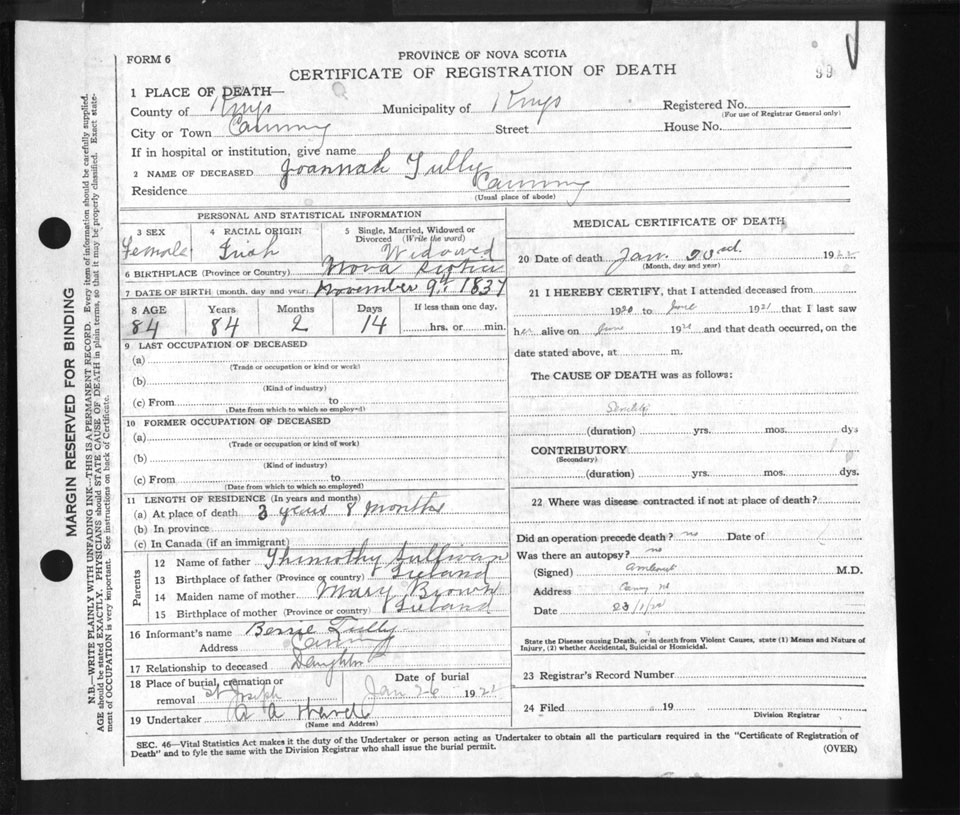 FORM 6
PROVINCE OF NOVA SCOTIA
CERTIFICATE OF REGISTRATION OF DEATH
99
1 PLACE OF DEATH—
County of Kings Municipality of Kings Registered No.
(For use of Registrar General only)
City or Town Canning Street House No.
If in hospital or institution, give name
2 NAME OF DECEASED Joannah Tully
Residence Canning
(Usual place of abode)
PERSONAL AND STATISTICAL INFORMATION
3 SEX Female
4 RACIAL ORIGIN Irish
5 Single, Married, Widowed or Divorced (Write the word) Widowed
6 BIRTHPLACE (Province or Country) Nova Scotia
7 DATE OF BIRTH (month, day and year) November 9th 1837
8 AGE Years Months Days If less than one day,
84 84 2 14 hrs. or min.
9 LAST OCCUPATION OF DECEASED
(a)
(Trade or occupation or kind or work)
(b)
(Kind of industry)
(c) From to
(Date from which to which so employed)
10 FORMER OCCUPATION OF DECEASED
(a)
(Trade or occupation or kind of work)
(b)
(Kind of industry)
(c) From to
(Date from which to which so employed)
11 LENGTH OF RESIDENCE (In years and months)
(a) At place of death 3 years 8 months
(b) In province
(c) In Canada (if an immigrant)
Parents
12 Name of father Thimothy Sullivan
13 Birthplace of father (Province or country) Ireland
14 Maiden name of mother Mary Brown
15 Birthplace of mother (Province or country) Ireland
16 Informant's name Bessie Tully
Address Canning
17 Relationship to deceased Daughter
18 Place of burial, cremation or removal St Joseph
Date of burial
Jan 26 192
19 Undertaker A A
(Name and Address)
MEDICAL CERTIFICATE OF DEATH
20 Date of death Jan. 23rd 1922
(Month, day and year)
21 I HEREBY CERTIFY, that I attended deceased from
1920 to 1921 that I last saw
her alive on June 1921 and that death occurred, on the
date stated above, at m.
The CAUSE OF DEATH was as follows:
Senility
(duration) yrs. mos. dys
CONTRIBUTORY
(Secondary)
(duration) yrs. mos. dys.
22 Where was disease contracted if not at place of death?
Did an operation precede death? no Date of
Was there an autopsy? no
(Signed) M.D.
Address
Date 23/1/22
State the Disease causing Death, or in death from Violent Causes, state (1) Means and Nature of
Injury, (2) whether Accidental, Suicidal or Homicidal.
23 Registrar's Record Number
24 Filed 19
Division Registrar
SEC. 46—Vital Statistics Act makes it the duty of the Undertaker or person acting as Undertaker to obtain all the particulars required in the "Certificate of Registration of
Death" and to fyle the same with the Division Registrar who shall issue the burial permit.
(OVER)
MARGIN RESERVED FOR BINDING
N.B.—WRITE PLAINLY WITH UNFADING INK—THIS IS A PERMANENT RECORD. Every item of information should be carefully supplied.
AGE should be stated EXACTLY. PHYSICIANS should STATE CAUSE OF DEATH in plain terms, so that it may be properly classified. Exact state-
ment of OCCUPATION is very important. See instructions on back of Certificate.